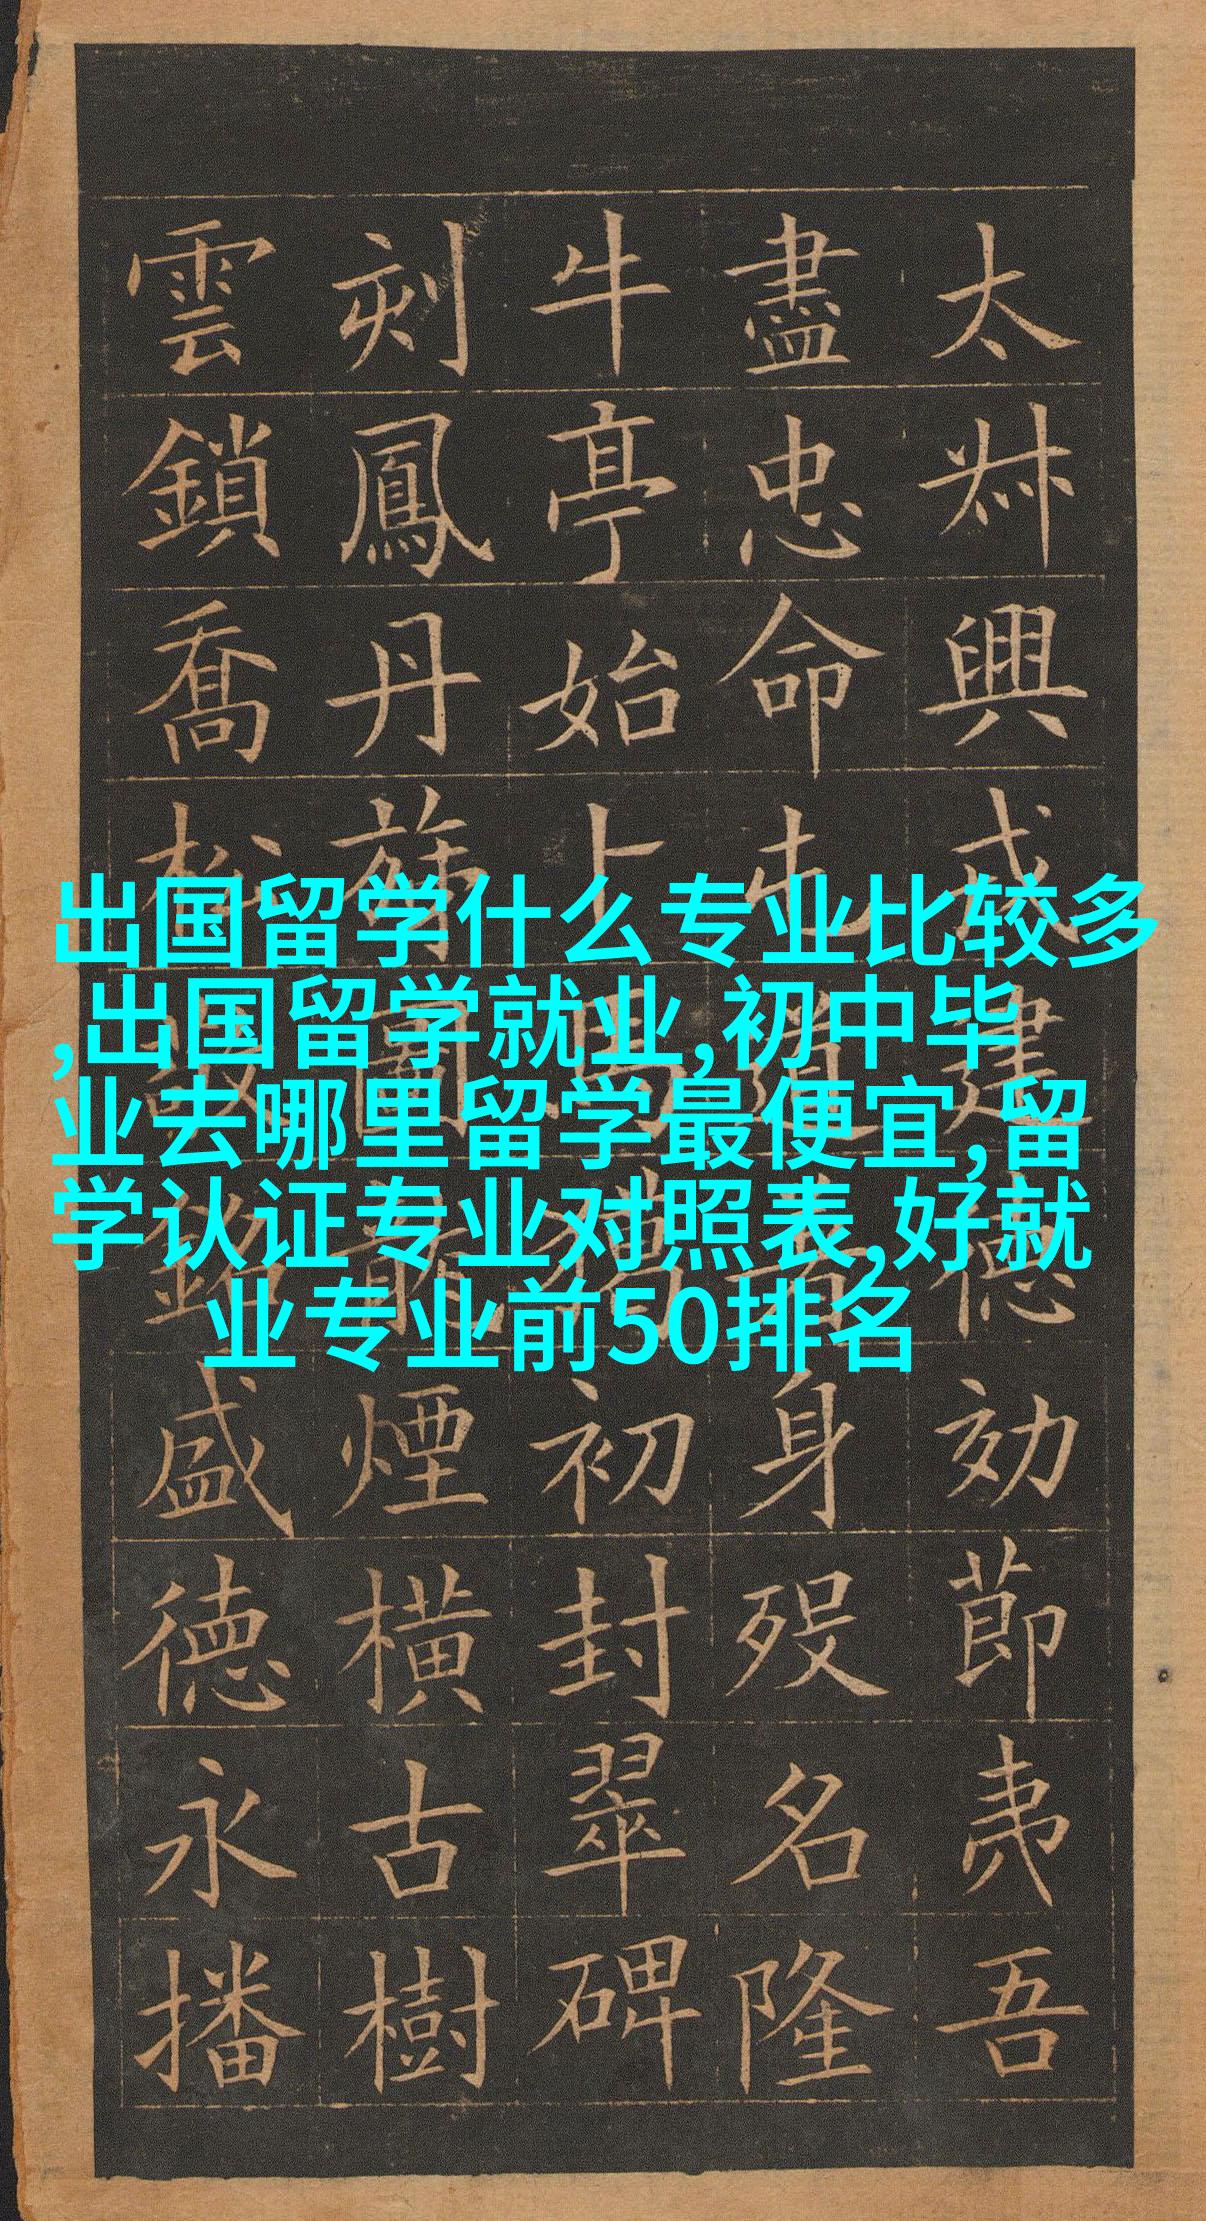 出国留学什么专业比较多
,出国留学就业,初中毕
业去哪里留学最便宜,留
学认证专业对照表,好就
业专业前50排名
太叔興戎建德効節夷吾
盡忠命身歿名隆
牛亭始卜馬初封翠碑
刻鳳丹煙橫古樹
雲鎖喬松銘盛德永播